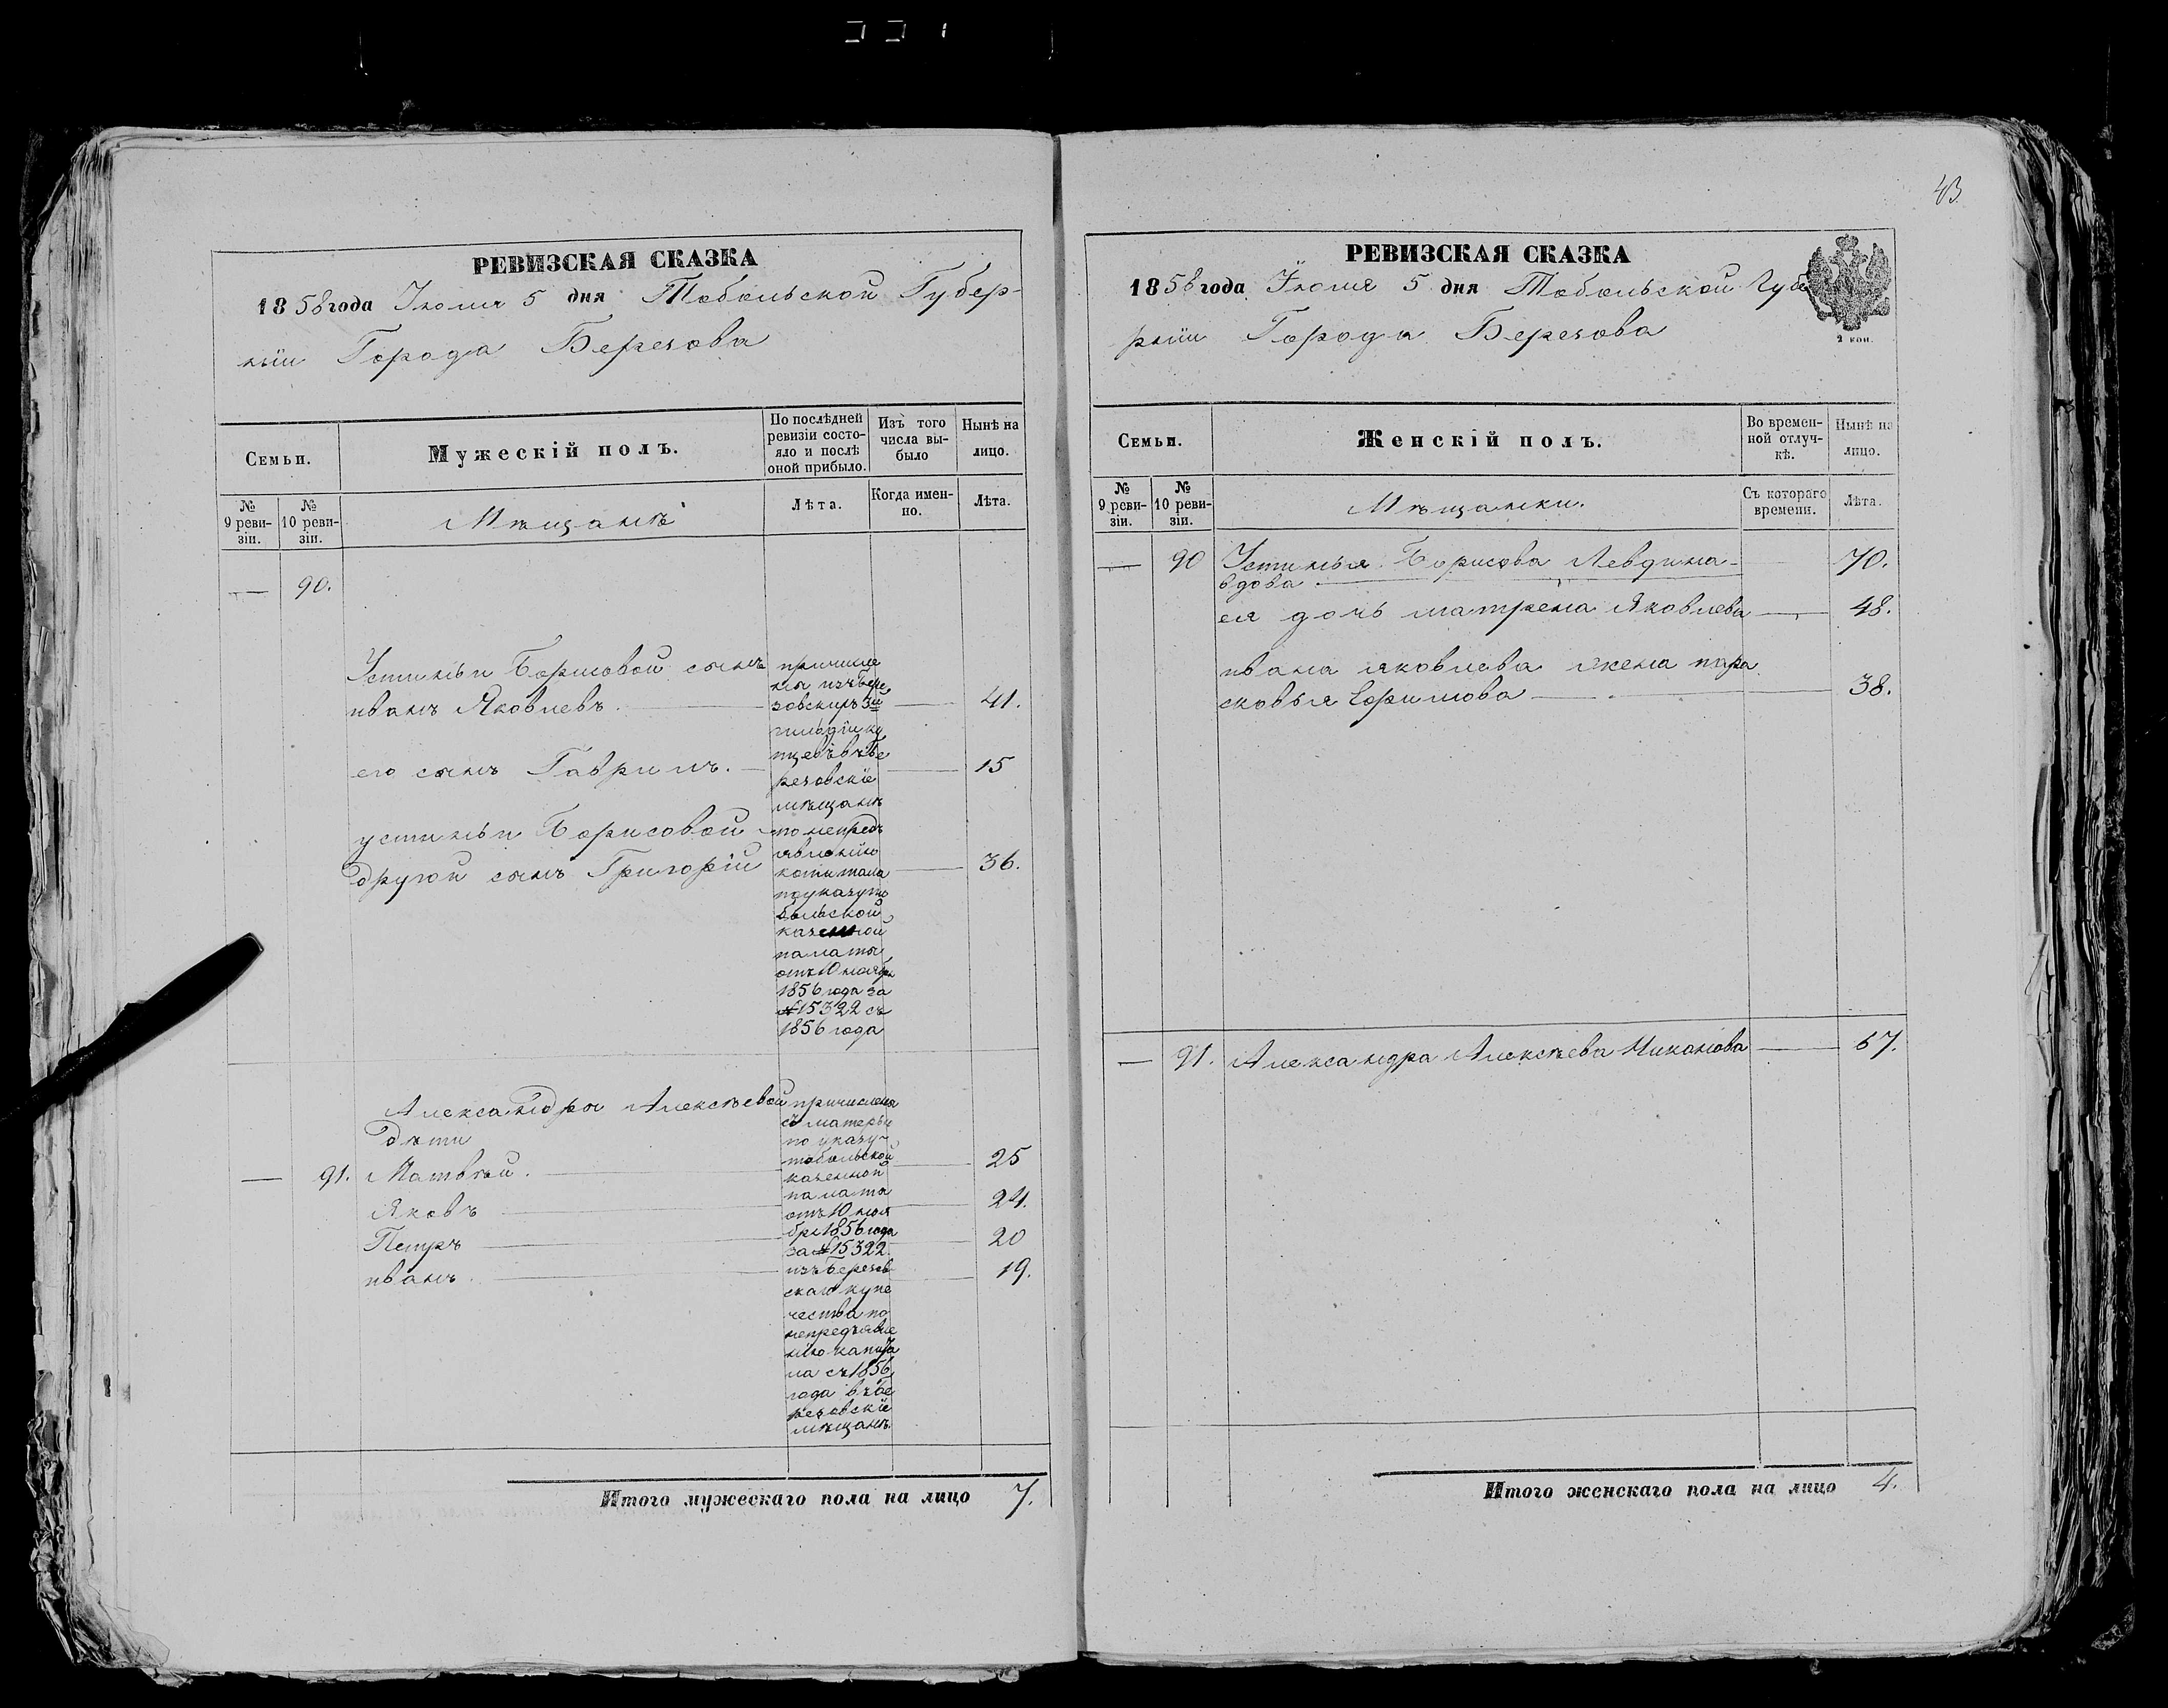 43
РЕВИЗСКАЯ СКАЗКА
1858 года Іюля 5 дня Тобольской Губер-
ніи Города Березова
Семьи.
Мужескій полъ.
По послѣдней
ревизіи состо-
яло и послѣ
оной прибыло.
Изъ того
числа вы-
было
Нынѣ на
лицо.
№
9 реви-
зіи.
№
10 реви-
зіи.
Мѣщанѣ
Лѣта.
Когда имен-
но.
Лѣта.
— 90.
Устиньи Борисовой сынъ
иванъ Яковлевъ. 41.
его сынъ Гаврилъ. 15
устиньи Борисовой
другой сынъ Григорій 36.
причисле
ны изъ Бере
зовскихъ 3й
гильдіи ку
пцевъ въ Бе
резовскіе
мѣщанѣ
по непредъ
явленію
капитала
по указу то
больской
казенной
палаты
отъ 10 ноября
1856 года за
№ 15322 съ
1856 года
Александры Алексѣевой
дѣти
— 91. Матвѣй. 25
Яковъ 24.
Петръ 20
иванъ. 19.
причислены
съ матерью
по указу
тобольской
казенной
палаты
отъ 10 ноя
бря 1856 года
за № 15322
изъ Березов
скаго купе
чества по
непредъявле
нію капита
ла съ 1856
года въ Бе
резовскіе
мѣщанѣ.
Итого мужескаго пола на лицо 7.
РЕВИЗСКАЯ СКАЗКА
1858 года Іюля 5 дня Тобольской Губе
рніи Города Березова
2 коп.
Семьи.
Женскій полъ.
Во времен-
ной отлуч-
кѣ.
Нынѣ на
лицо.
№
9 реви-
зіи.
№
10 реви-
зіи.
Мѣщанки.
Съ котораго
времени.
Лѣта.
— 90 Устинья Борисова Левдина 70.
вдова
ея дочь матрена Яковлева 48.
ивана яковлева жена пара
сковья Ефимова 38.
— 91. Александра Алексѣева Никонова 67.
Итого женскаго пола на лицо 4.